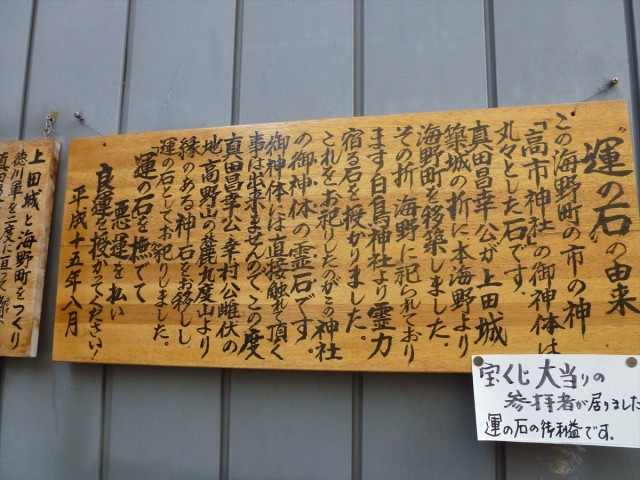 "運の石"の由来
この海野町の市の神
「高市神社」の御神体は
丸々とした石です。
真田昌幸公が上田城
築城の折に本海野より
海野町を移築しました。
その折、海野に祀られており
ます白鳥神社より霊力
宿る石を授かりました。
これをお祀りしたのがこの神社
の御神体の霊石です。
御神体には直接触れて頂く
事は出来ませんのでこの度
真田昌幸公、幸村公雌伏の
地高野山の麓九度山より
縁のある神石をお移しし、
運の石としてお祀りしました。
「運の石を撫でて
悪運を払い
良運を授かってください！
平成十五年八月
宝くじ大当りの
参拝者が居りました
運の石の御利益です。
上田城と海野町をつくり
徳川軍を二度に亘って